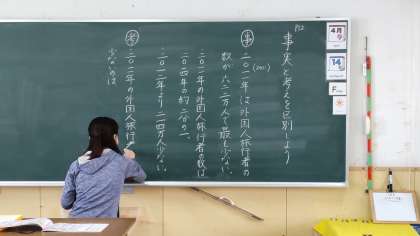 P12
事実と考えを区別しよう
事
二〇一一年は外国人旅行者の
(2011)
数が六二二万人で最も少ない。
二〇一一年の外国人旅行者の数は
二〇一四年の約二分の一、
二〇一二年より二一四万人少ない。
考
二〇一一年の外国人旅行
少ないのは
4月
9
14